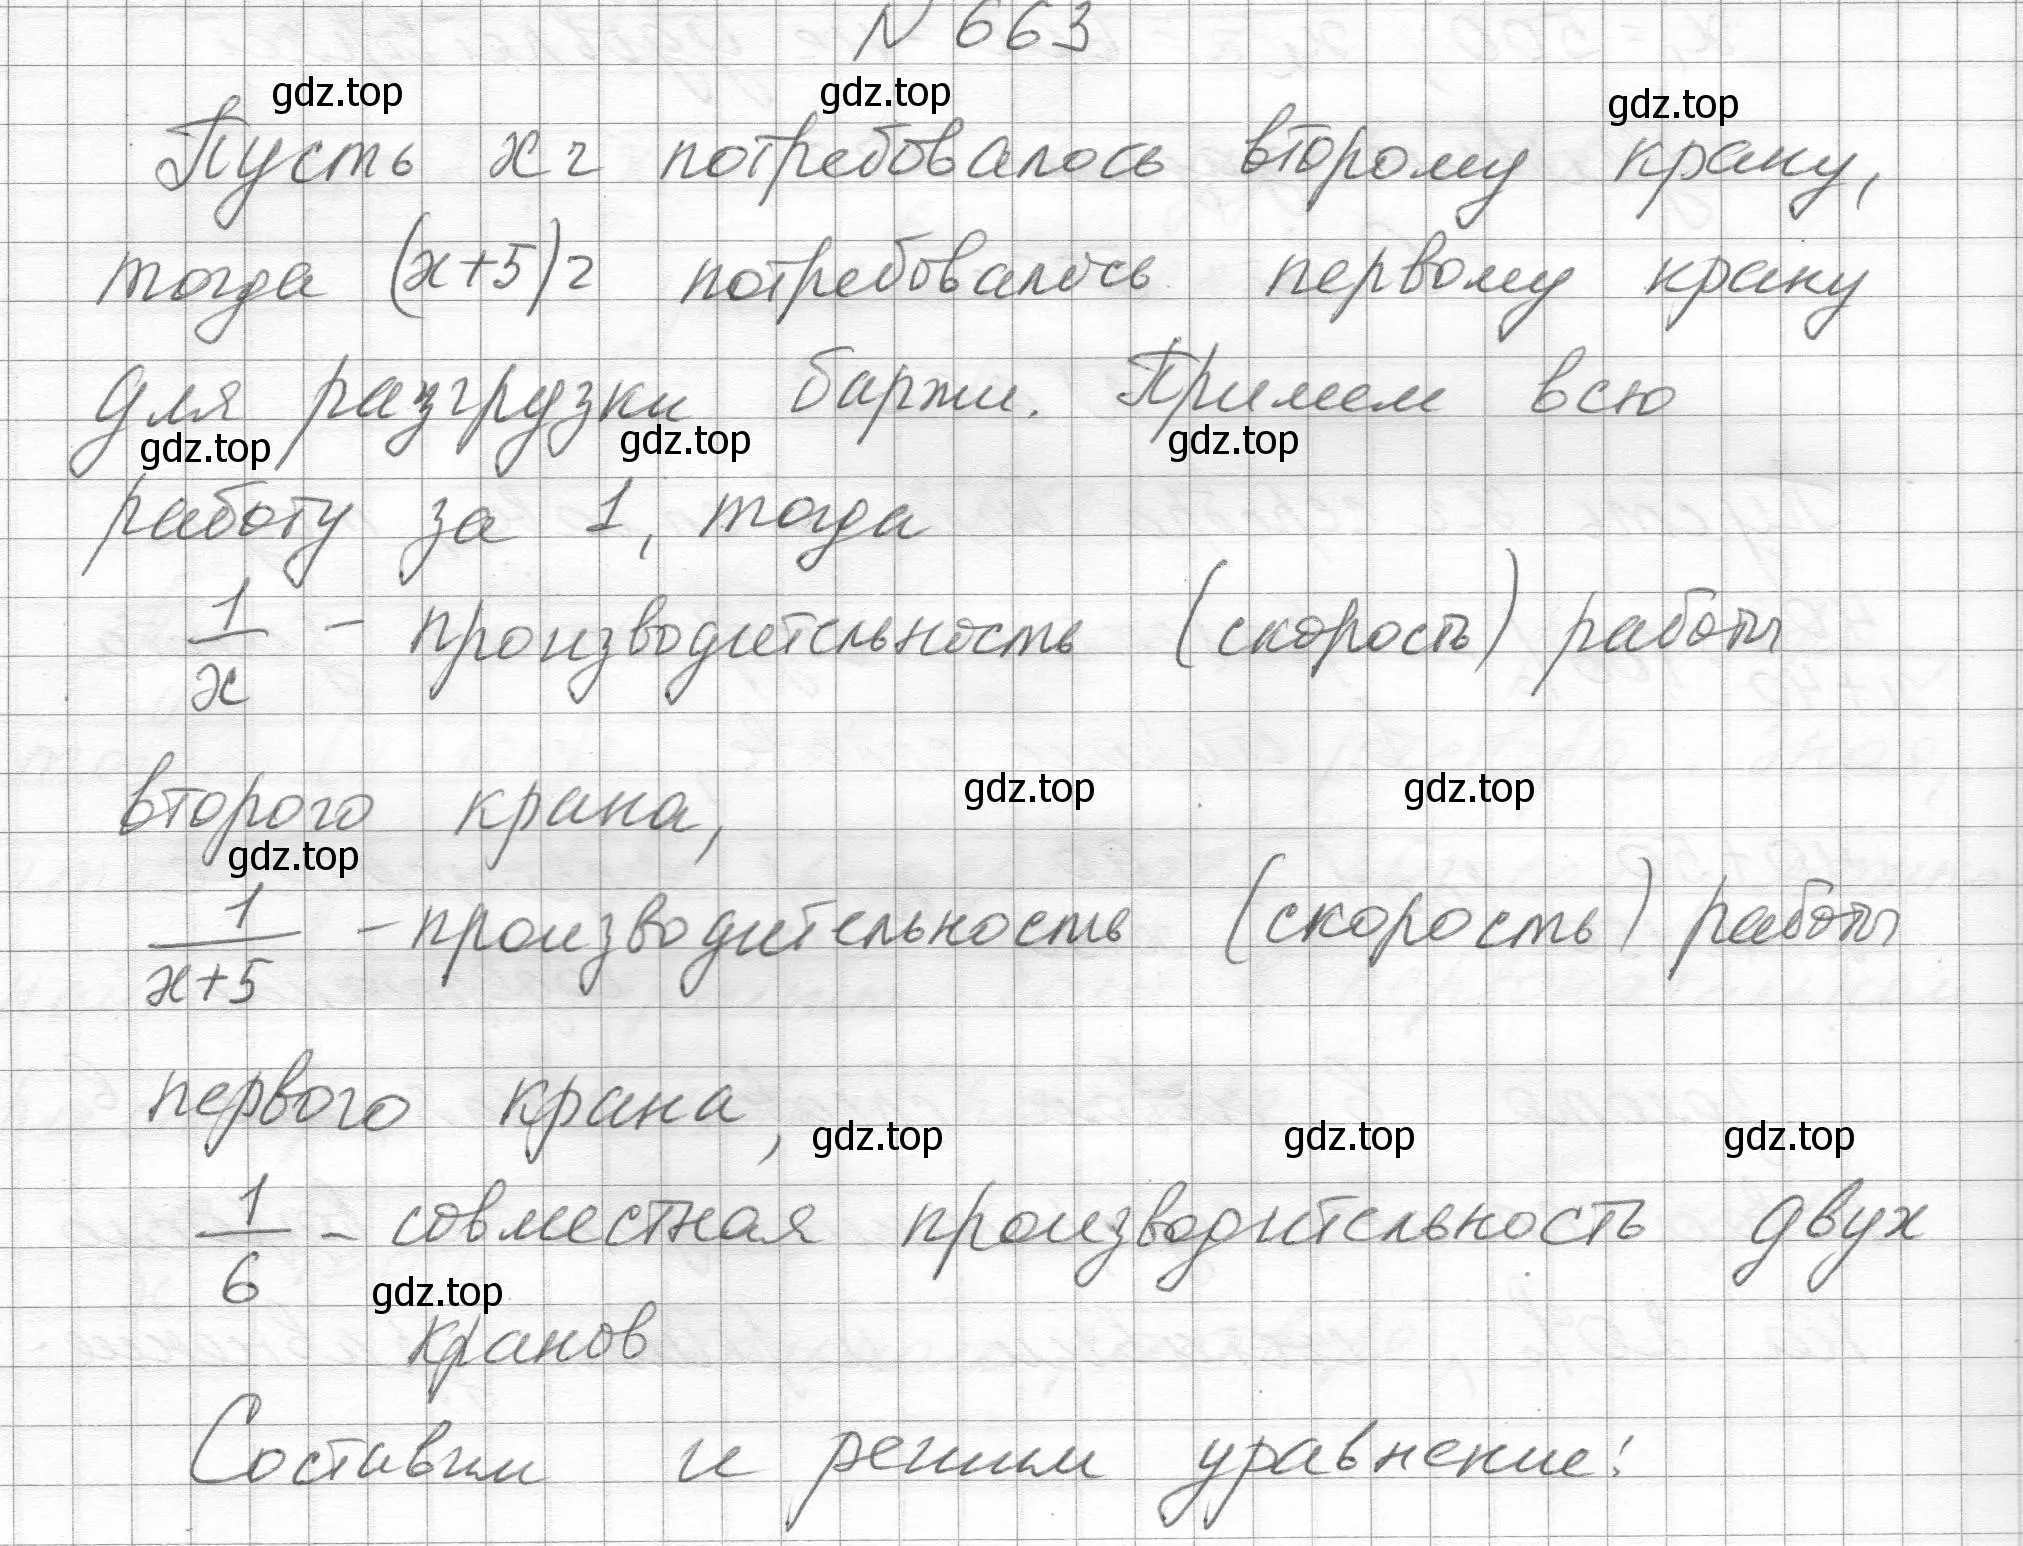 N 663
gdz.top gdz.top gdz.top
Пусть x ч потребовалось второму крану,
тогда (x+5)ч потребовалось первому крану
для разгрузки баржи. Примем всю
gdz.top gdz.top gdz.top
работу за 1, тогда
1/x - производительность (скорость) работы
gdz.top gdz.top
второго крана,
gdz.top
1/(x+5) - производительность (скорость) работы
первого крана,
gdz.top gdz.top gdz.top
1/6 - совместная производительность двух
gdz.top
кранов
Составим и решим уравнение: